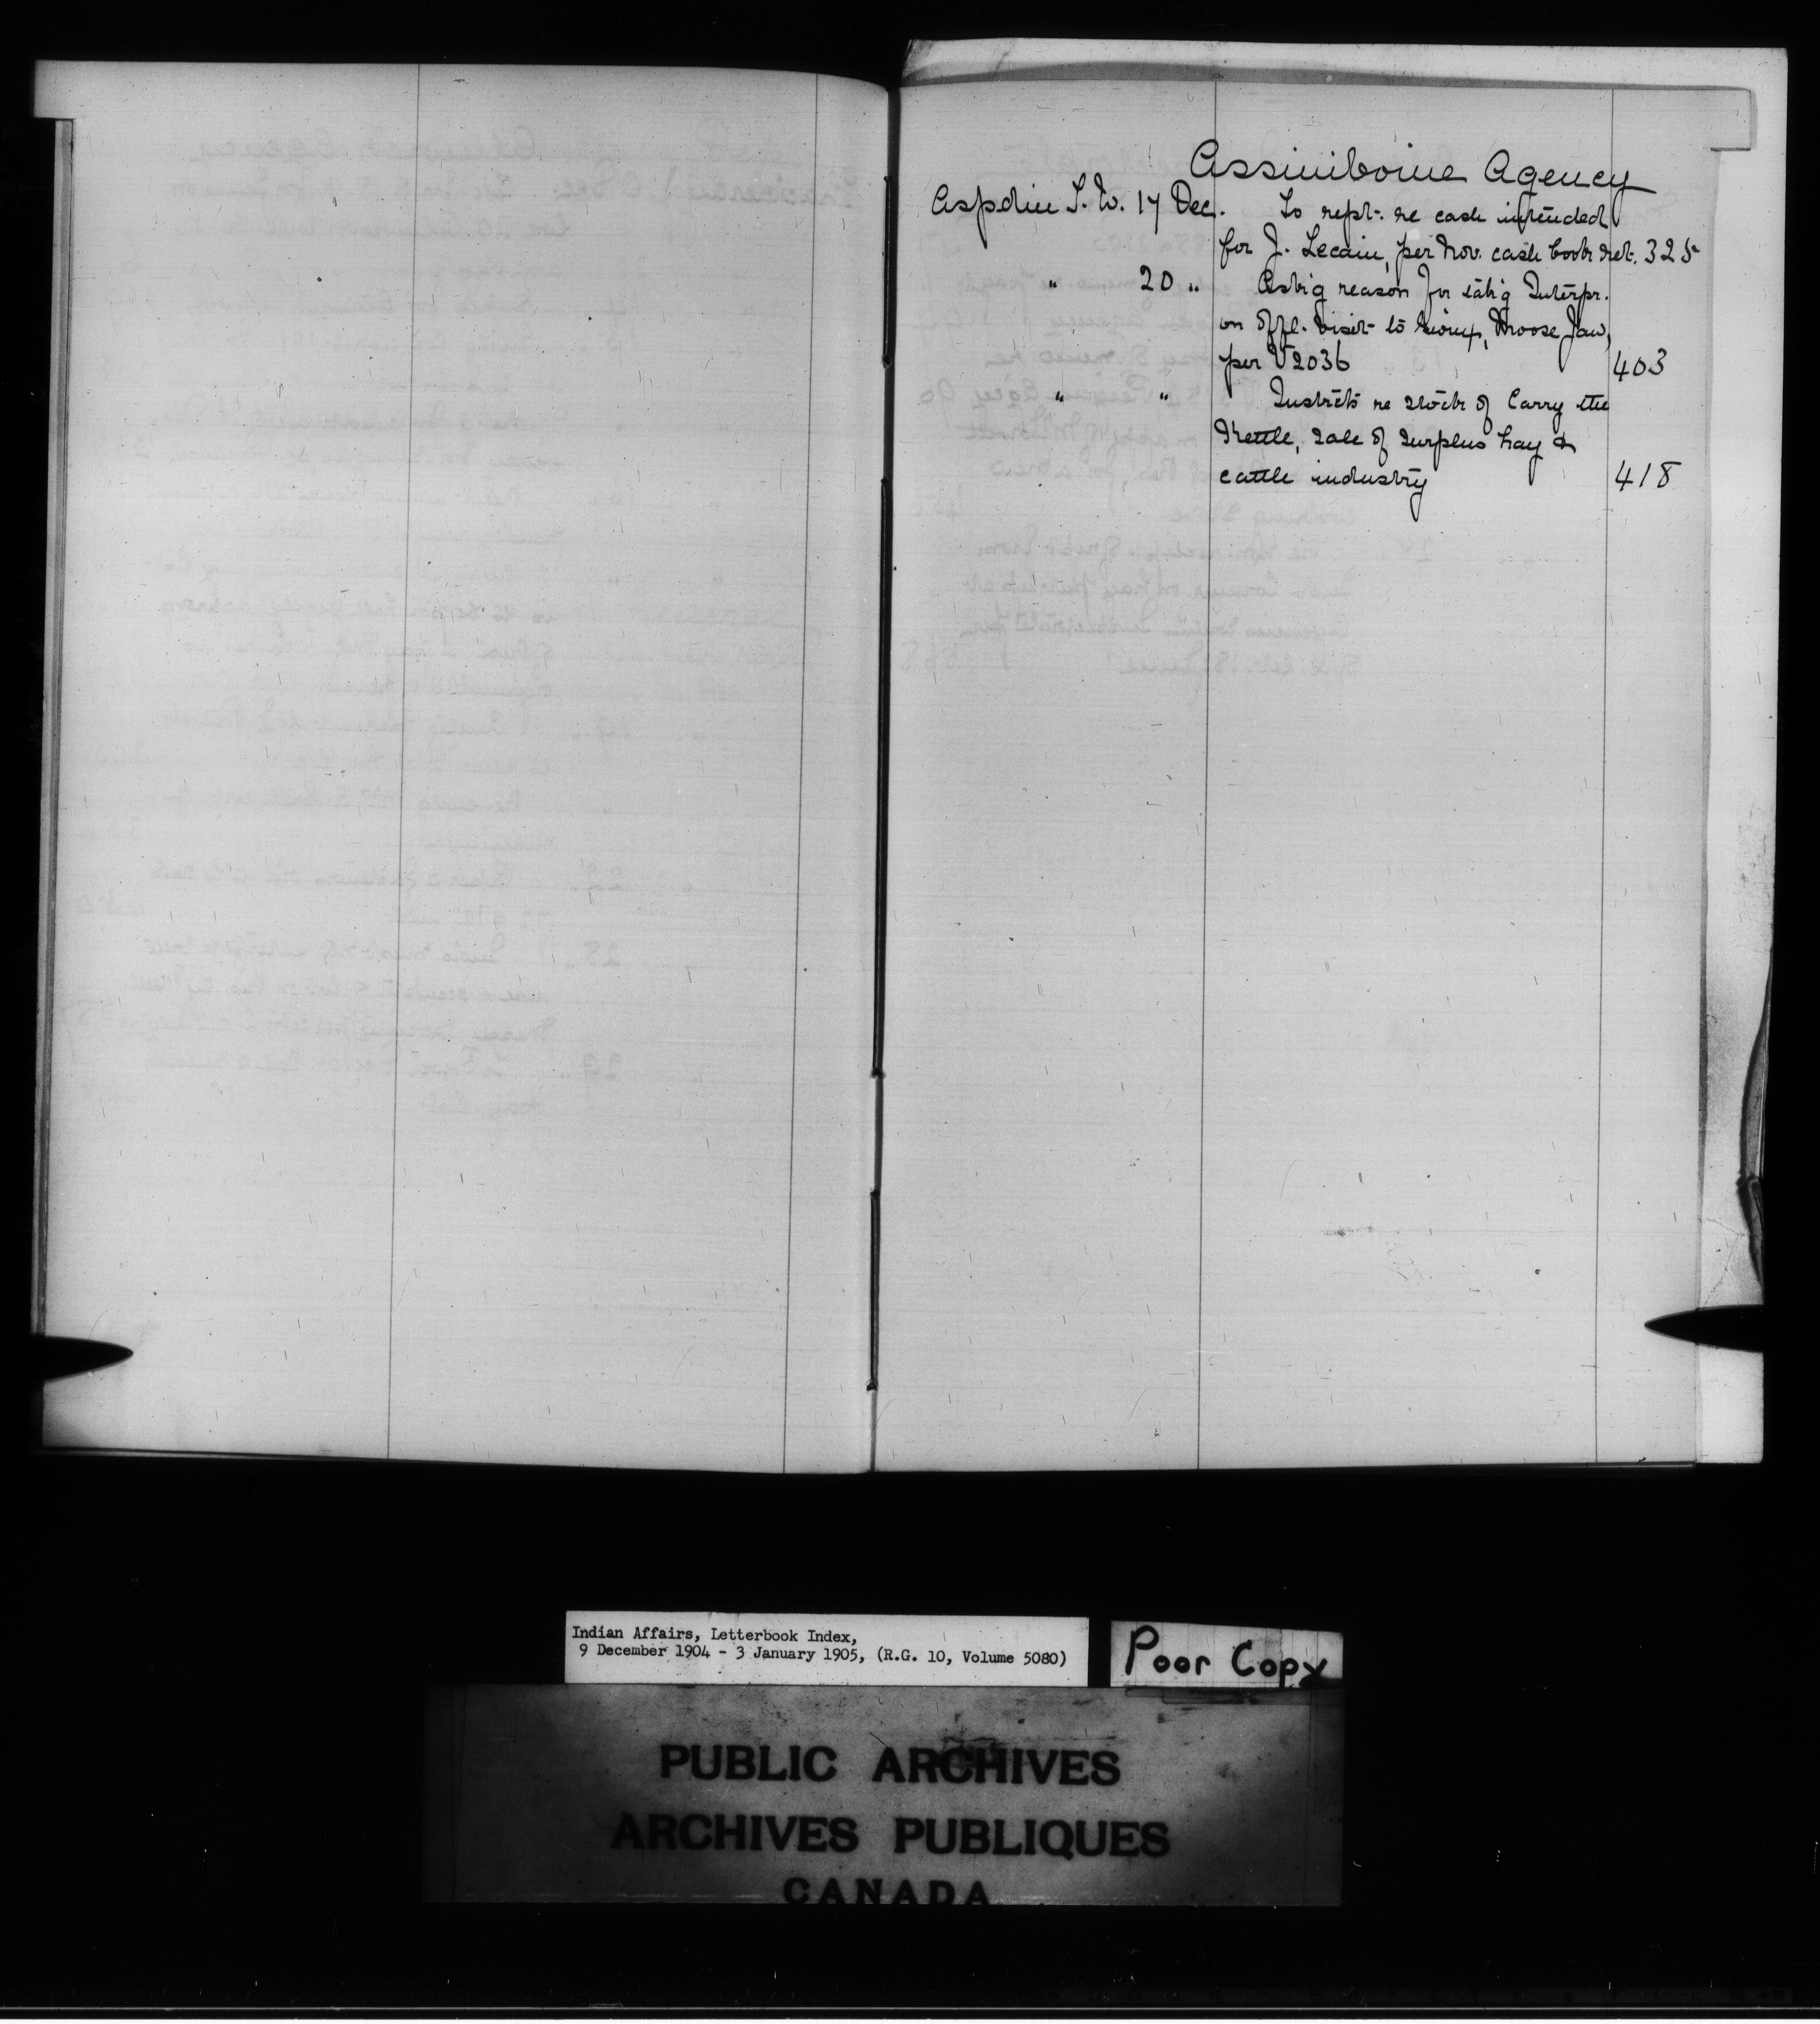 Assiniboine Agency
Aspdin T. W. 17 Dec. To rept. re cash intended
for J. Lecain, per Nov. cash book ret. 325
" 20 " Ask'g reason for tak'g Interpr.
on offl. visit to Sioux, Moose Jaw,
per V2036 403
" " Instrcts re stock of Carry the
Kettle, sale of surplus hay &
cattle industry 418
Indian Affairs, Letterbook Index,
9 December 1904 - 3 January 1905, (R.G. 10, Volume 5080)
Poor Copy
PUBLIC ARCHIVES
ARCHIVES PUBLIQUES
CANADA